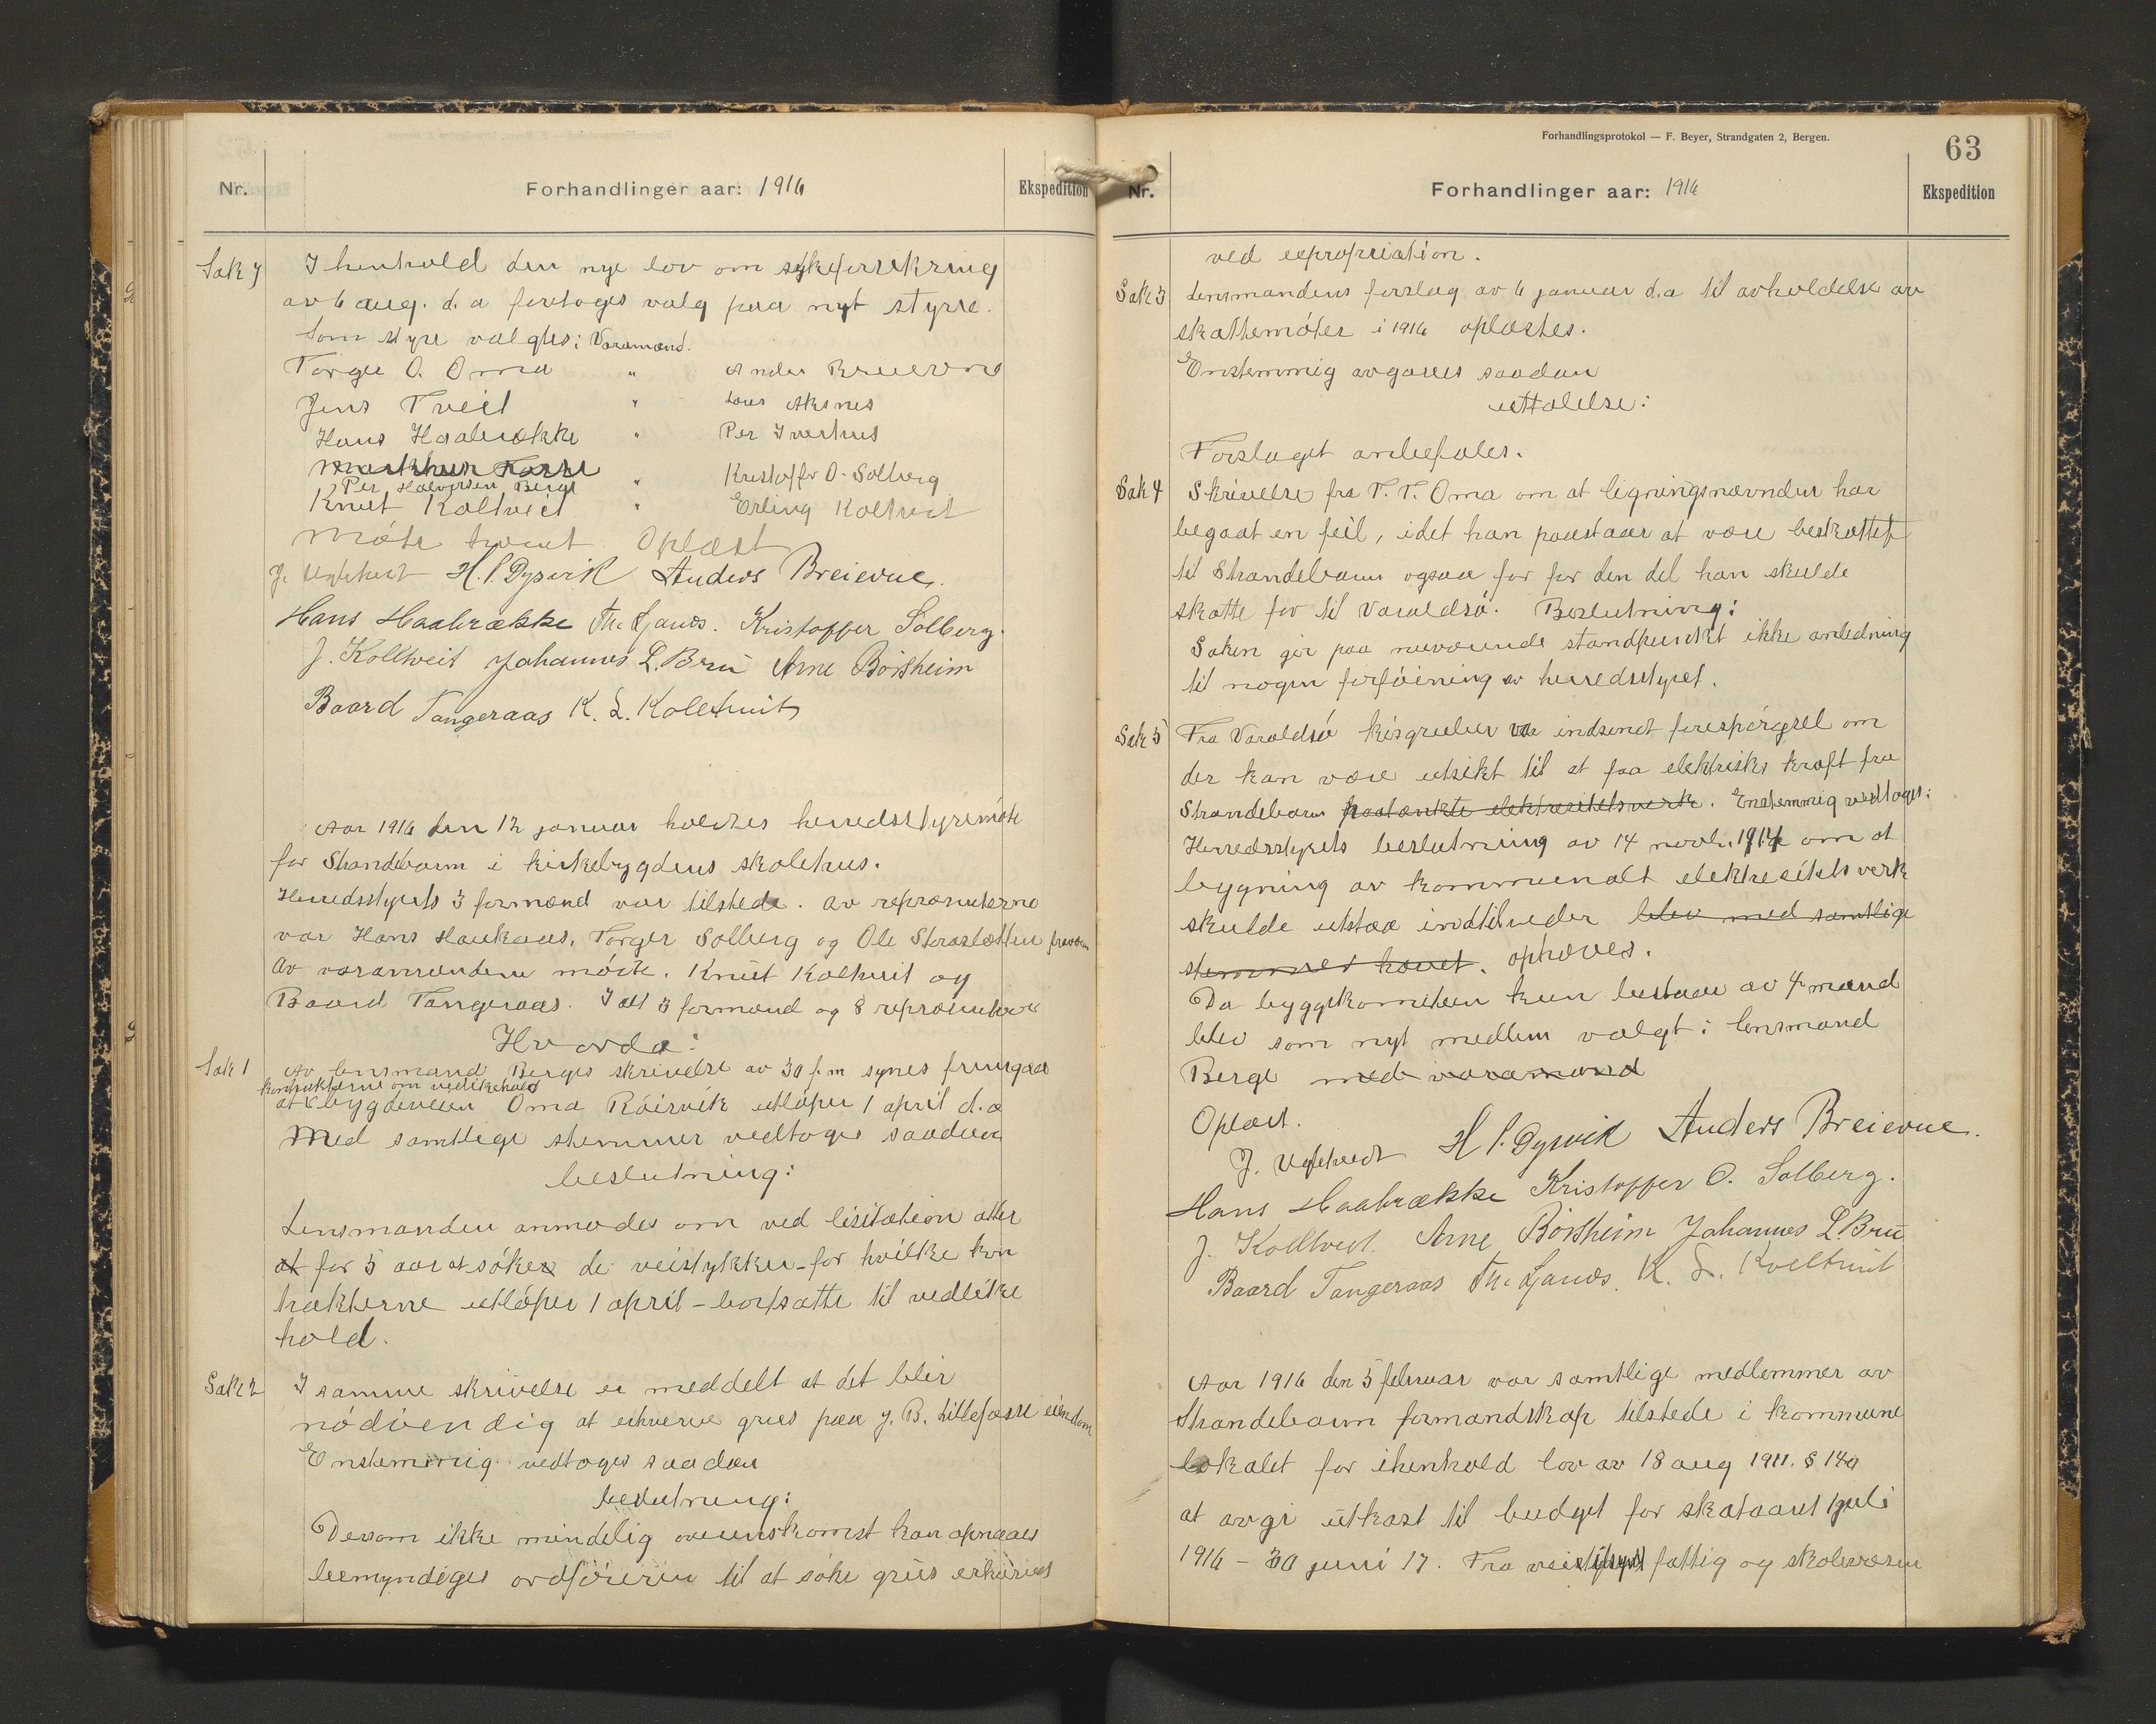 Nr.
Forhandlinger aar: 1916
Ekspedition
Sak 7
I henhold den nye lov om sykeforsikring
av 6 aug. d. a foretoges valg paa nyt styre.
Som styre valgtes: Varamænd.
Torger O. Oma " Anders Breievne
Jens Tveit " Lars Aksnes
Hans Haabrække " Per Iverhus
Per Halvorsen Berge " Kristoffer O. Solberg
Knut Koltveit " Erling Koltveit
Møte hævet Oplæst
J. H. P. Dysvik Anders Breievne.
Hans Haabrække Th. Ljanes. Kristoffer Solberg.
J. Kolltveit Johannes L. Bru Arne Børsheim
Baard Tangeraas K. L. Koltveit
Aar 1916 den 12 januar holdtes herredsstyremøte
for Strandebarm i kirkebygdens skolehus.
Herredsstyrets 3 formænd var tilstede. av repræsenterne
var Hans Haukaas, Torger Solberg og Ole
Av varamændene møtte. Knut Koltveit og
Baard Tangeraas. I alt 3 formænd og 8 repræsentere
Hvorda:
Sak 1
Av lensmand Berges skrivelse av 30 f. m synes fremgaa
kontrakterne om vedlikehold
at bygdeveien Oma Røirvik utløper 1 april d. a
Med samtlige stemmer vedtoges saadan
beslutning:
Lensmanden anmodes om ved lisitation atter
at for 5 aar at søke de veistykker – for hvilke kon
trakterne utløper 1 april – bortsatte til vedlike
hold.
Sak 2
I samme skrivelse er meddelt at det blir
nødvendig at erhverve grus paa J. B. Lillefosse eiendom
Enstemmig vedtoges saadan
beslutning:
Dersom ikke mindelig overenskomst kan opnaaes
bemyndiges ordføreren til at søke grus erhvervet
Forhandlingsprotokol — F. Beyer, Strandgaten 2, Bergen.
63
Nr.
Forhandlinger aar: 1916
Ekspedition
ved expropriation.
Sak 3
Lensmandens forslag av 6 januar d. a til avholdelse av
skattemøter i 1916 oplæstes.
Enstemmig avgaves saadan
uttalelse:
Forslaget anbefales.
Sak 4
Skrivelse fra T. T. Oma om at ligningsnævnden har
begaat en feil, idet han paastaar at være beskattet
til Strandebarm ogsaa for for den del han skulde
skatte for til Varaldsø. Beslutning:
Saken gir paa nuværende standpunkt ikke anledning
til nogen forføining av herredsstyret.
Sak 5
Fra Varaldsø kisgruber var indsendt forespørgsel om
der kan være utsikt til at faa elektriske kraft fra
Strandebarm paatænkte elektrisitetsverk. Enstemmig vedtoges:
Herredsstyrets beslutning av 14 novb. 1914 om at
bygning av kommunalt elektrisitetsverk
skulde utstaa indtilvider blev med samtlige
stemmer hævet. ophæves.
Da byggekomiteen kun bestaar av 4 mænd
blev som nyt medlem valgt: lensmand
Berge med varamænd
Oplæst.
J. H. P. Dysvik Anders Breievne.
Hans Haabrække Kristoffer O. Solberg.
J. Kolltveit. Arne Børsheim Johannes L. Bru
Baard Tangeraas Th. Ljanes. K. L. Koltveit
Aar 1916 den 5 februar var samtlige medlemmer av
Strandebarm formandskap tilstede i kommune
lokalet for ihenhold lov av 18 aug 1911. § 14a
at avgi utkast til budget for skataaret 1 juli
1916 – 30 juni 17. Fra veitilsynet fattig og skolevæsen